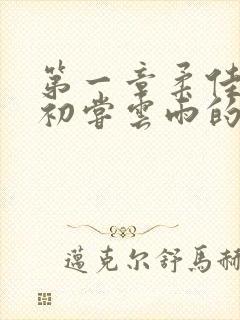 第一章柔佳
初嘗雲雨的
邁克尔舒馬赫